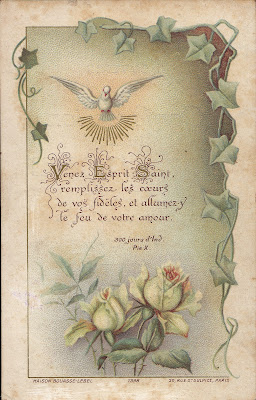 Venez Esprit Saint,
remplissez les cœurs
de vos fidèles, et allumez-y
le feu de votre amour.
300 jours d'Ind.
Pie X.
MAISON BOUASSE-LEBEL
29, RUE ST SULPICE, PARIS